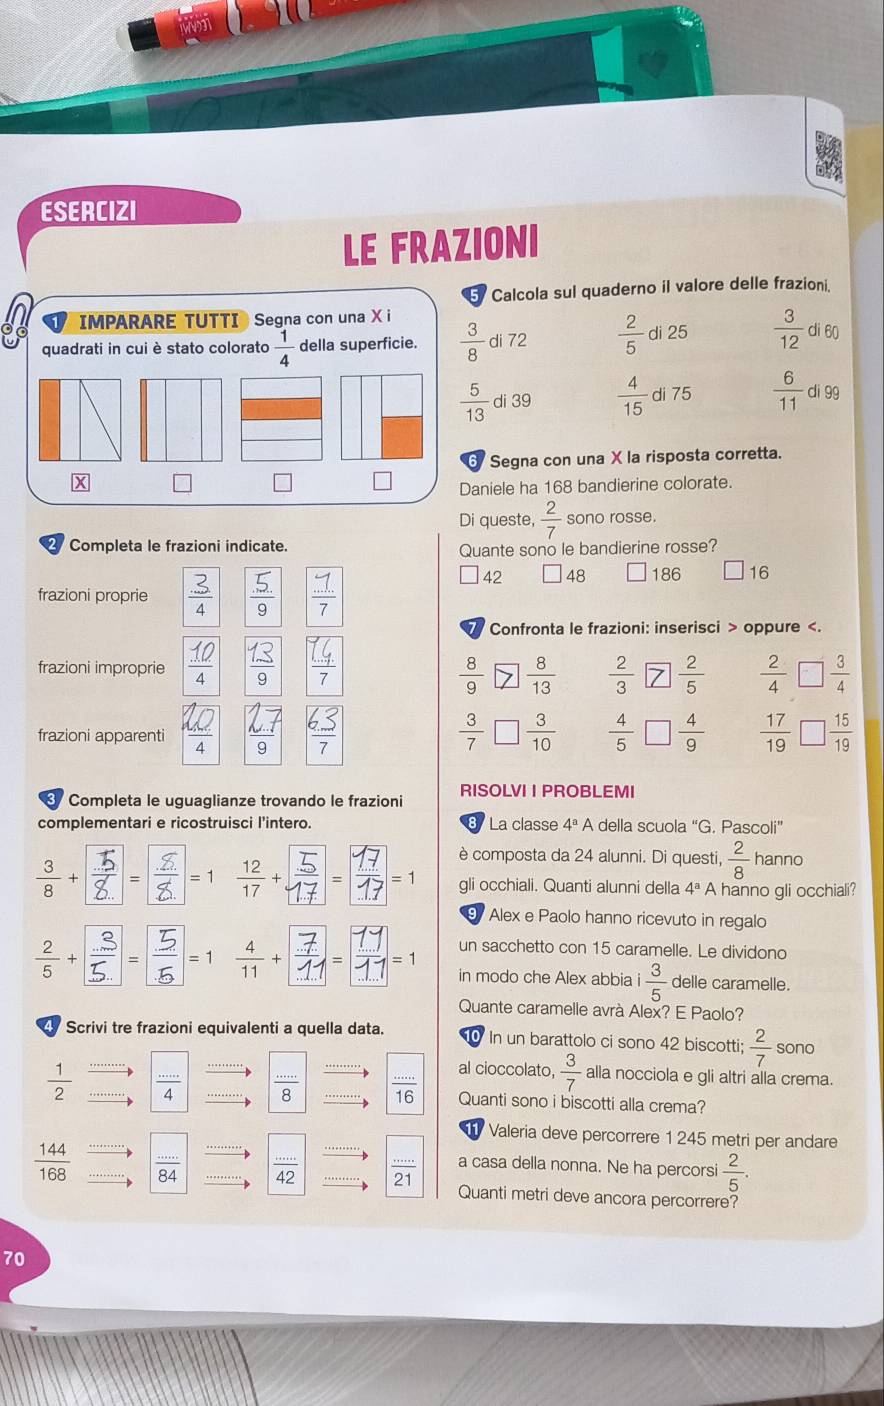 LEGAMI
ESERCIZI
LE FRAZIONI
1 IMPARARE TUTTI Segna con una X i
quadrati in cui è stato colorato 1/4 della superficie.
X
2 Completa le frazioni indicate.
frazioni proprie 3/4 5/9 1/7
frazioni improprie 10/4 13/9 14/7
frazioni apparenti 20/4 27/9 63/7
3 Completa le uguaglianze trovando le frazioni
complementari e ricostruisci l'intero.
3/8 + 5/8 = 8/8 = 1 12/17 + 5/17 = 17/17 = 1
2/5 + 3/5 = 5/5 = 1 4/11 + 7/11 = 11/11 = 1
4 Scrivi tre frazioni equivalenti a quella data.
1/2 ....../4 ....../8 ....../16
144/168 ....../84 ....../42 ....../21
5 Calcola sul quaderno il valore delle frazioni.
3/8 di 72 2/5 di 25 3/12 di 60
5/13 di 39 4/15 di 75 6/11 di 99
6 Segna con una X la risposta corretta.
Daniele ha 168 bandierine colorate.
Di queste, 2/7 sono rosse.
Quante sono le bandierine rosse?
□ 42 □ 48 □ 186 □ 16
7 Confronta le frazioni: inserisci > oppure <.
8/9 > 8/13 2/3 > 2/5 2/4 □ 3/4
3/7 □ 3/10 4/5 □ 4/9 17/19 □ 15/19
RISOLVI I PROBLEMI
8 La classe 4ª A della scuola “G. Pascoli”
è composta da 24 alunni. Di questi, 2/8 hanno
gli occhiali. Quanti alunni della 4ª A hanno gli occhiali?
9 Alex e Paolo hanno ricevuto in regalo
un sacchetto con 15 caramelle. Le dividono
in modo che Alex abbia i 3/5 delle caramelle.
Quante caramelle avrà Alex? E Paolo?
10 In un barattolo ci sono 42 biscotti; 2/7 sono
al cioccolato, 3/7 alla nocciola e gli altri alla crema.
Quanti sono i biscotti alla crema?
11 Valeria deve percorrere 1 245 metri per andare
a casa della nonna. Ne ha percorsi 2/5.
Quanti metri deve ancora percorrere?
70